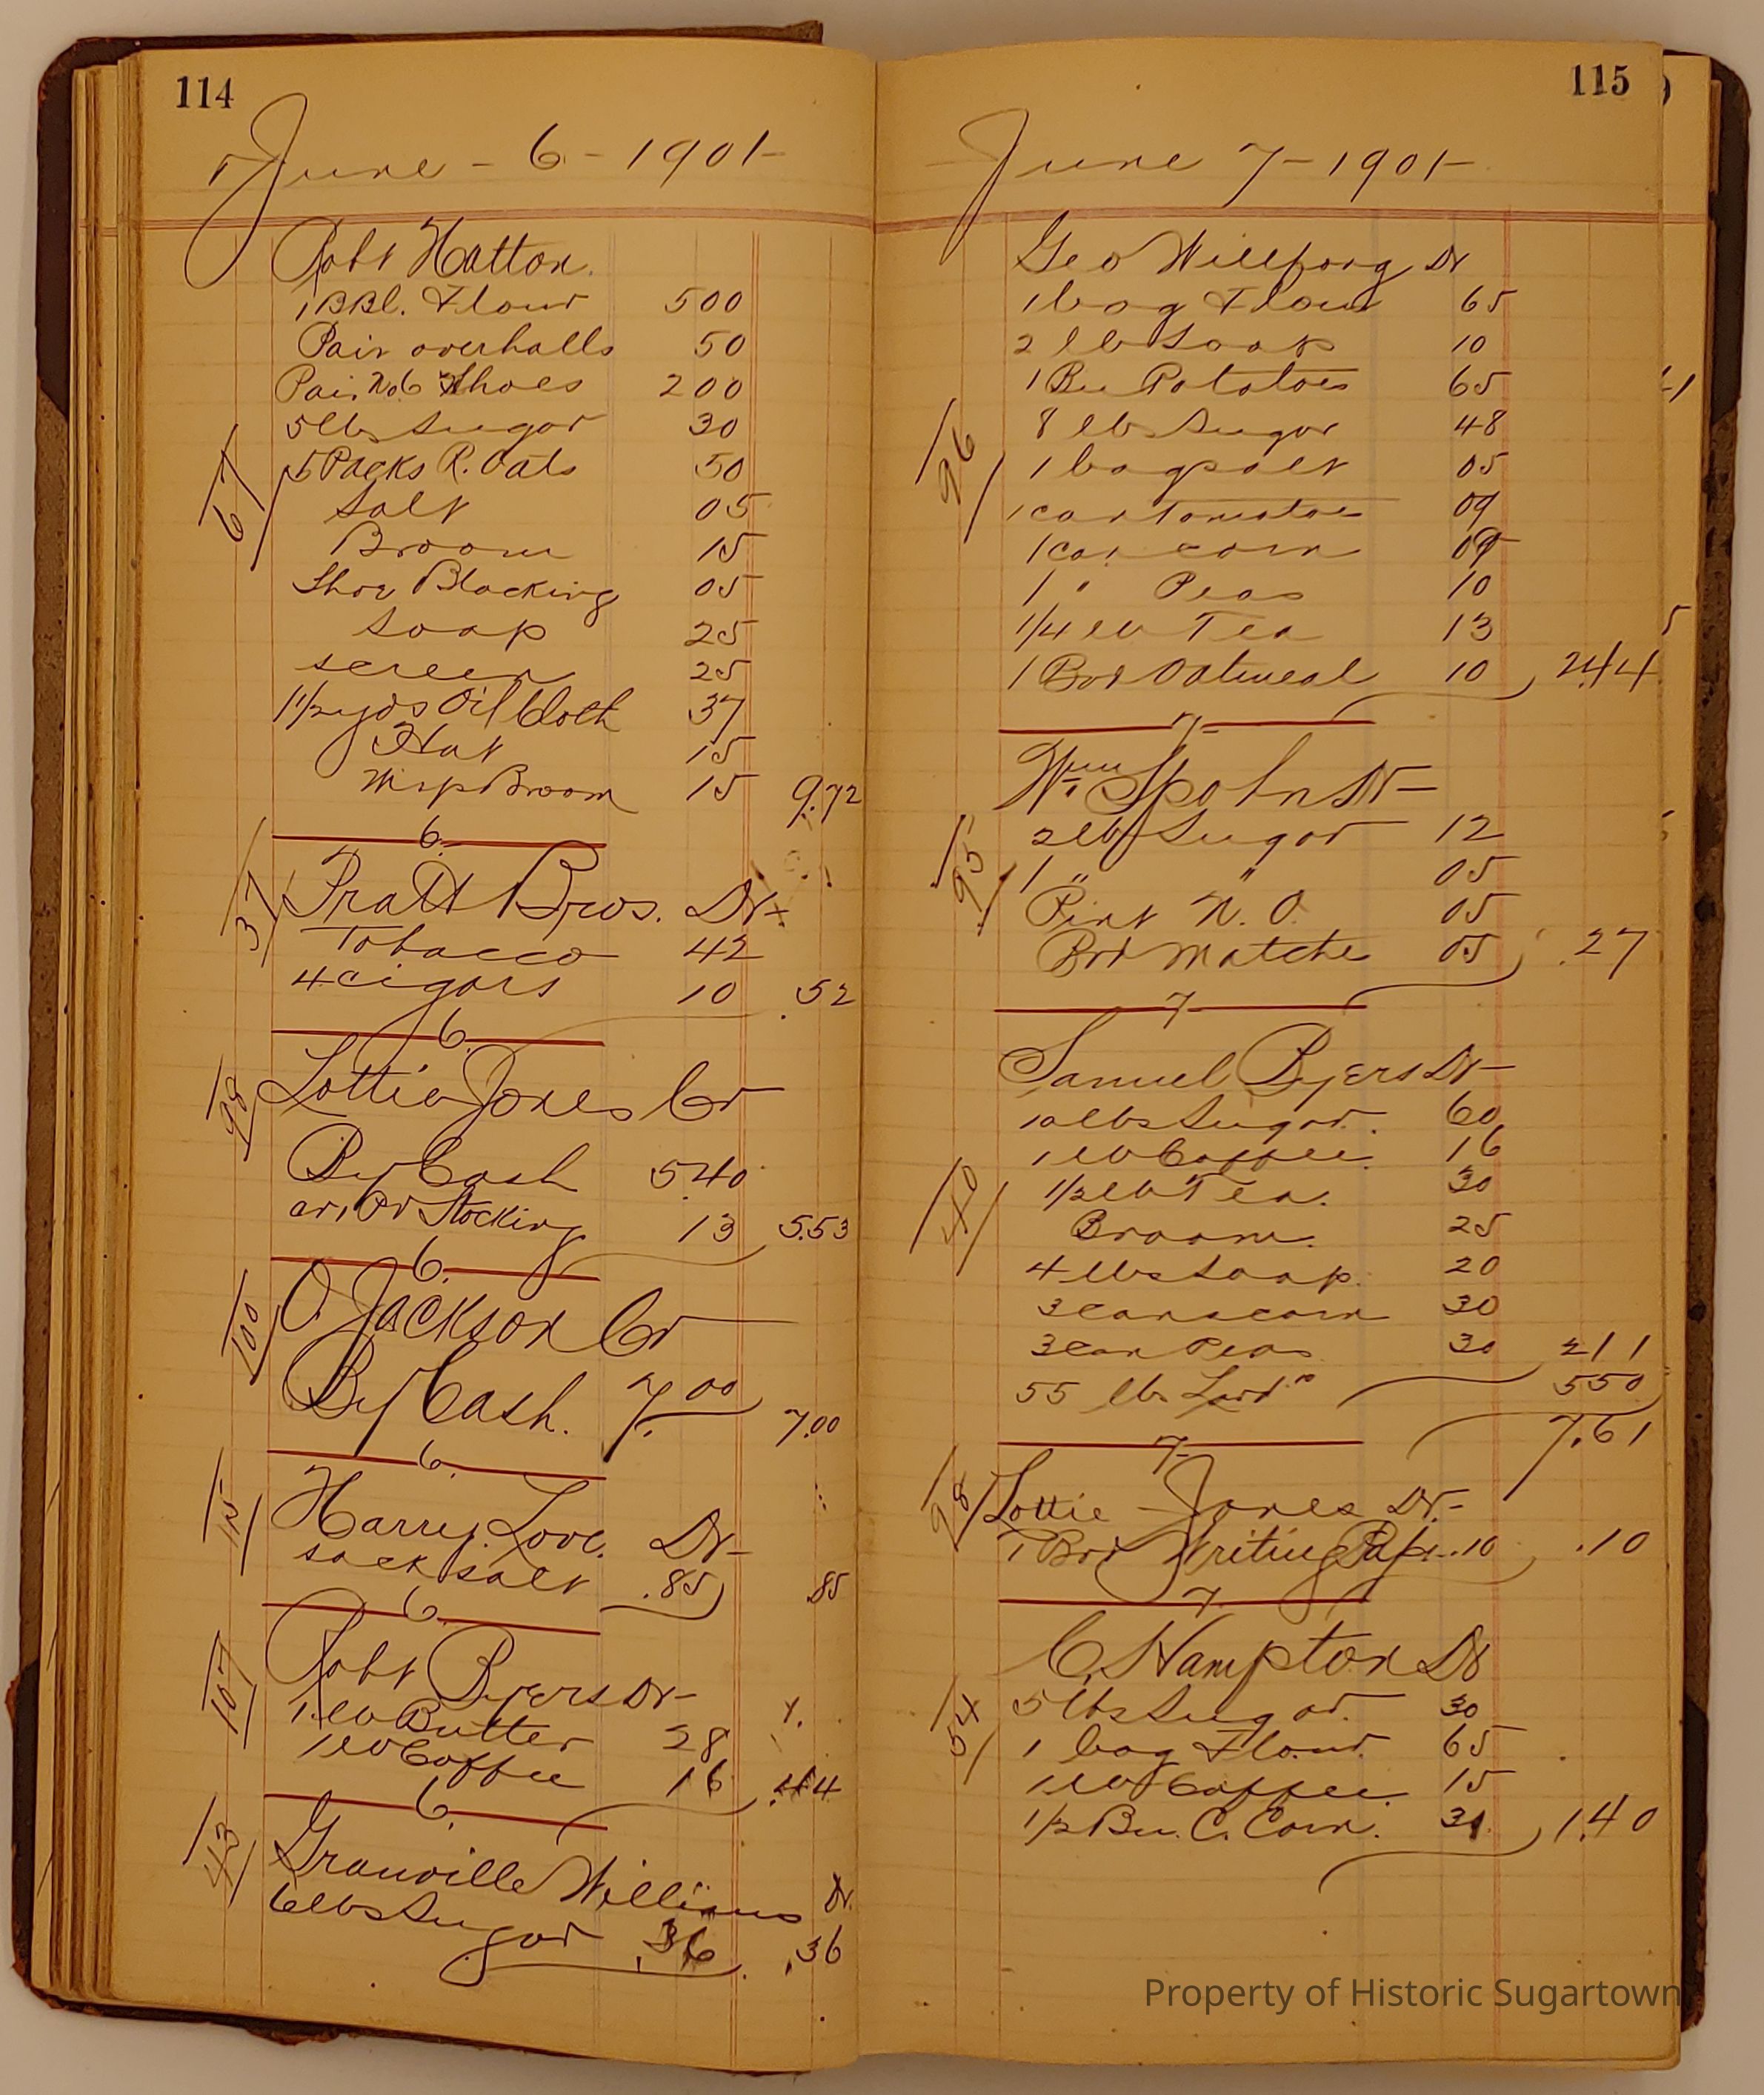 114
June - 6 - 1901-
Robt Hatton.
1 BBl. Flour 500
Pair overhalls 50
Pair No6 Shoes 200
5 lbs Sugar 30
67
5 Packs R. Oats 50
Salt 05
Broom 15
Shoe Blacking 05
Soap 25
screen 25
1 1/2 yds Oil Cloth 37
Hat 15
Wisp Broom 15 9.72
6.
37
Pratt Bros. Dr
Tobacco 42
4 cigars 10 .52
6.
98
Lottie Jones Cr
By Cash 5.40
Stocking 13 5.53
6.
100
O. Jackson Cr
By Cash. 7.00 7.00
6.
115
Harry Love. Dr-
sack salt .85 .85
6.
107
Robt Byers Dr-
1 lb Butter 28
1 lb Coffee 16 .44
6.
43
Granville Williams Dr.
6 lbs Sugar .36 .36
115
June 7-1901-
Geo Willfong Dr
1 bag Flour 65
2 lb Soap 10
1 Bu Potatoes 65
8 lbs Sugar 48
96
1 bag salt 05
1 can Tomatoes 09
1 can corn 09
1 " Peas 10
1/4 lb Tea 13
1 Box Oatmeal 10 2.44
7-
Wm Spohn Dr-
95
2 lb Sugar 12
1 " " 05
Pint N. O. 05
Box Matche 05 .27
7-
Samuel Byers Dr-
10 lbs Sugar. 60
1 lb Coffee. 16
40
1/2 lb Tea. 30
Broom. 25
4 lbs Soap. 20
3 cans corn 30
3 can Peas 30 211
55 lbs Lard 550
7.61
7-
98
Lottie Jones Dr.-
1 Box Writing Paper .10 .10
7-
C. Hampton Dr
54
5 lbs Sugar. 30
1 bag Flour. 65
1 lb Coffee. 15
1/2 Bu. C. Corn. 31 1.40
Property of Historic Sugartown